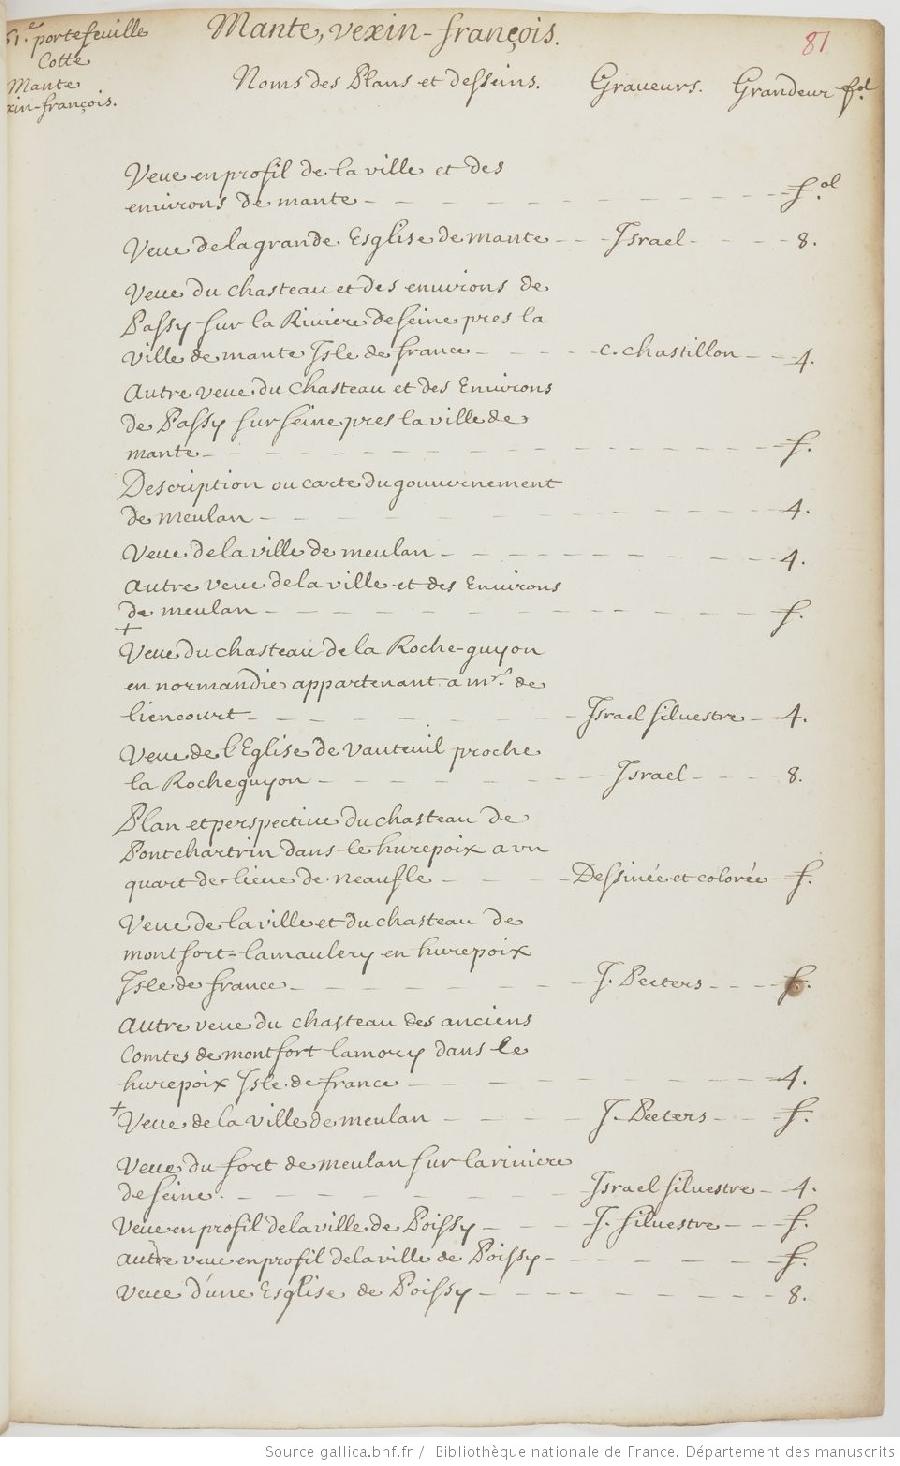 51.e portefeuille
Cotte
Mante
xin-françois.
Mante, vexin-françois.
81
Noms des Plans et desseins. Graveurs. Grandeur fol.
Veue en profil de la ville et des
environs de mante - - - - - - - fol.
Veue de la grande Esglise de mante - - Israel - - - - 8.
Veue du chasteau et des environs de
Passy sur la Riviere de seine pres la
ville de mante Isle de france - - - - c. chastillon - - 4.
Autre veue du chasteau et des Environs
de Passy sur seine pres la ville de
mante - - - - - - - f.
Description ou carte du gouvernement
de meulan - - - - - - - 4.
Veue de la ville de meulan - - - - - - - 4.
Autre veue de la ville et des Environs
de meulan - - - - - - - f.
+
Veue du chasteau de la Roche-guyon
en normandie appartenant a mr. de
liencourt - - - - - - Israel silvestre - 4.
Veue de l'Eglise de Vauteuil proche
la Rocheguyon - - - - - Israel - - - - 8.
Plan et perspective du chasteau de
Pontchartrin dans le hurepoix a un
quart de lieue de neaufle - - - - Dessinée et colorée - f.
Veue de la ville et du chasteau de
montfort-lamaulery en hurepoix
Isle de france - - - - - - J. Peeters - - - f.
Autre veue du chasteau des anciens
Comtes de montfort lamory dans le
hurepoix Isle de france - - - - - - - 4.
+ Veue de la ville de meulan - - - - J. Peeters - - - f.
Veue du fort de meulan sur la riviere
de seine. - - - - - - Israel silvestre - 4.
Veue en profil de la ville de Poissy - - - J. silvestre - - f.
autre veue en profil de la ville de Poissy - - - - - f.
Veue d'une Esglise de Poissy - - - - - - - 8.
Source gallica.bnf.fr / Bibliothèque nationale de France. Département des manuscrits